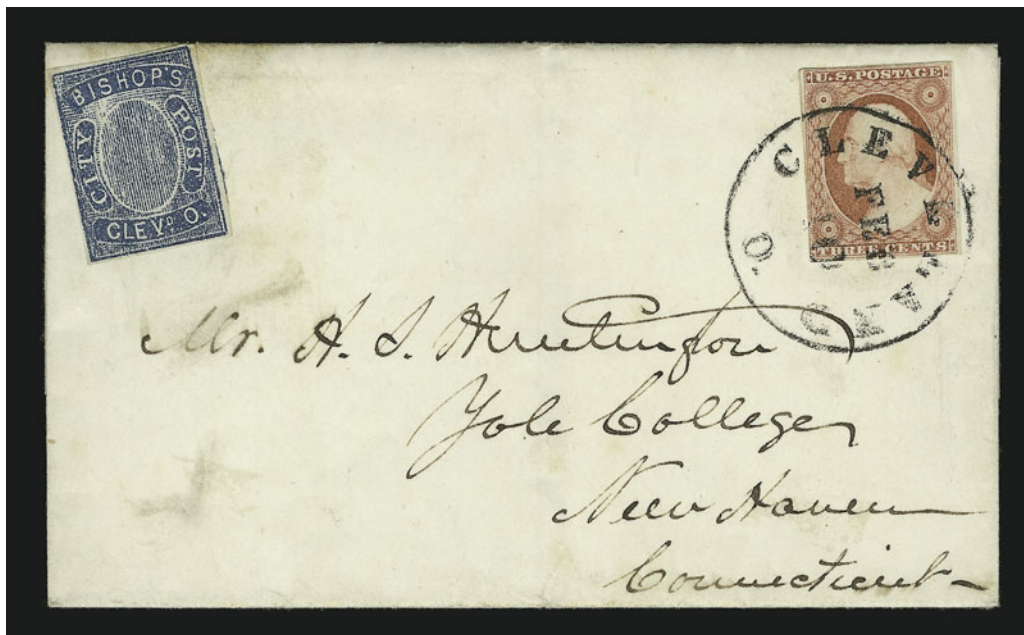 BISHOP'S
CITY POST
CLEVD. O.
U.S. POSTAGE
THREE CENTS
CLEVELAND O.
FEB
Mr. H. S. Huntington
Yale College
New Haven
Connecticut